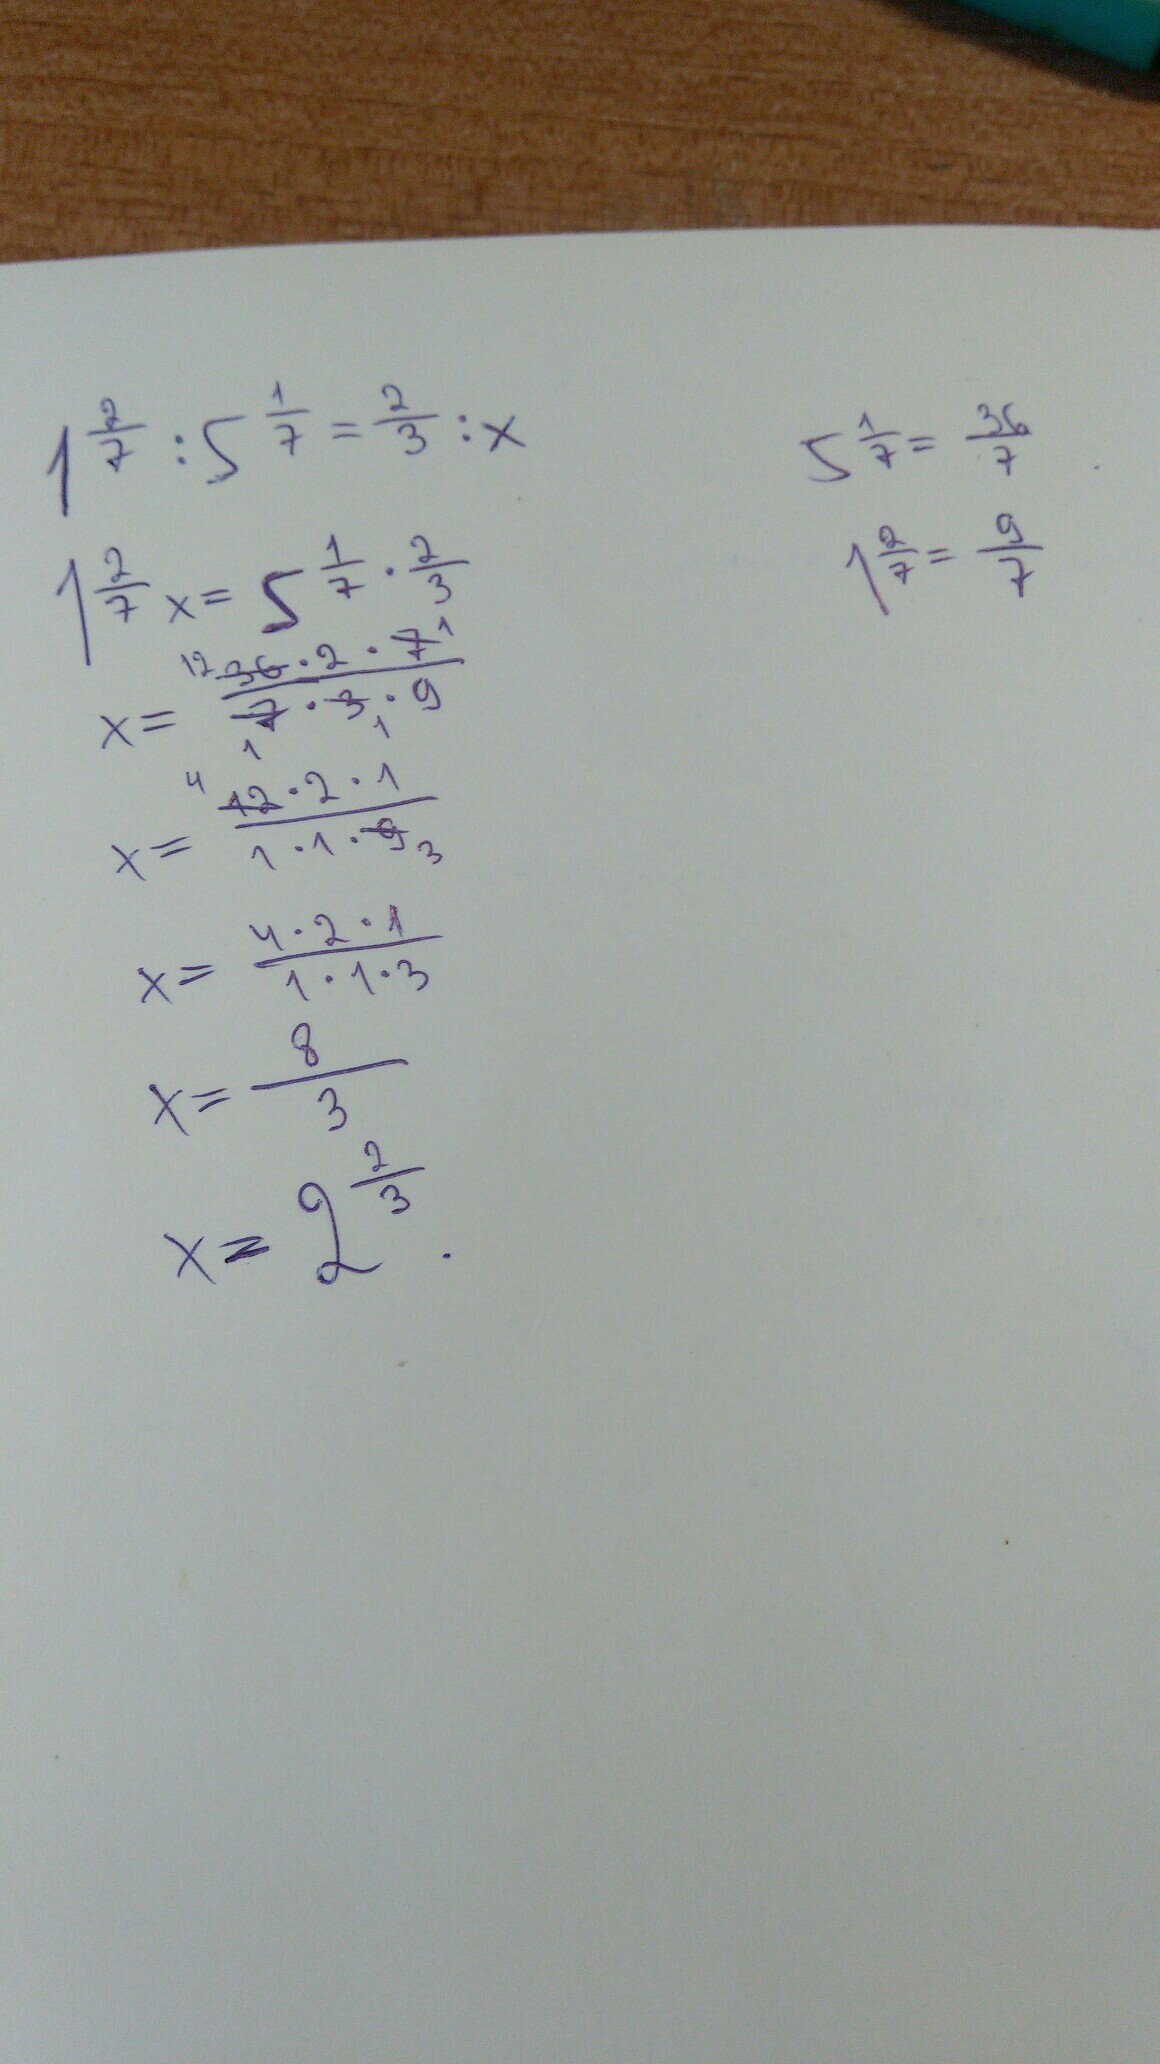 1 2/7 : 5 1/7 = 2/3 : x
1 2/7 x = 5 1/7 · 2/3
x = 12 36 · 2 · 7 1 / 7 1 · 3 1 · 9
x = 4 12 · 2 · 1 / 1 · 1 · 9 3
x = 4 · 2 · 1 / 1 · 1 · 3
x = 8/3
x = 2 2/3 .
5 1/7 = 36/7
1 2/7 = 9/7